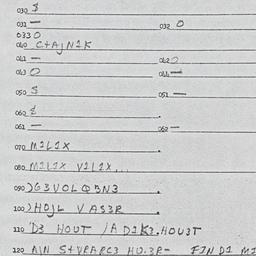 030 $
031 — 032 O
0330
040 C+AJN1K
041 — 042 O
043 O 044 —
050 S
051 —
060 £
061 — 062 —
070 M1L1X
080 M1L1X V1L1X...
090 )G3VOLQ5N3
100 )HOJL VAS3R
110 'D3 HOUT /A D1K3.HOU3T
120 A/N S+VRARC3 HU.3R-